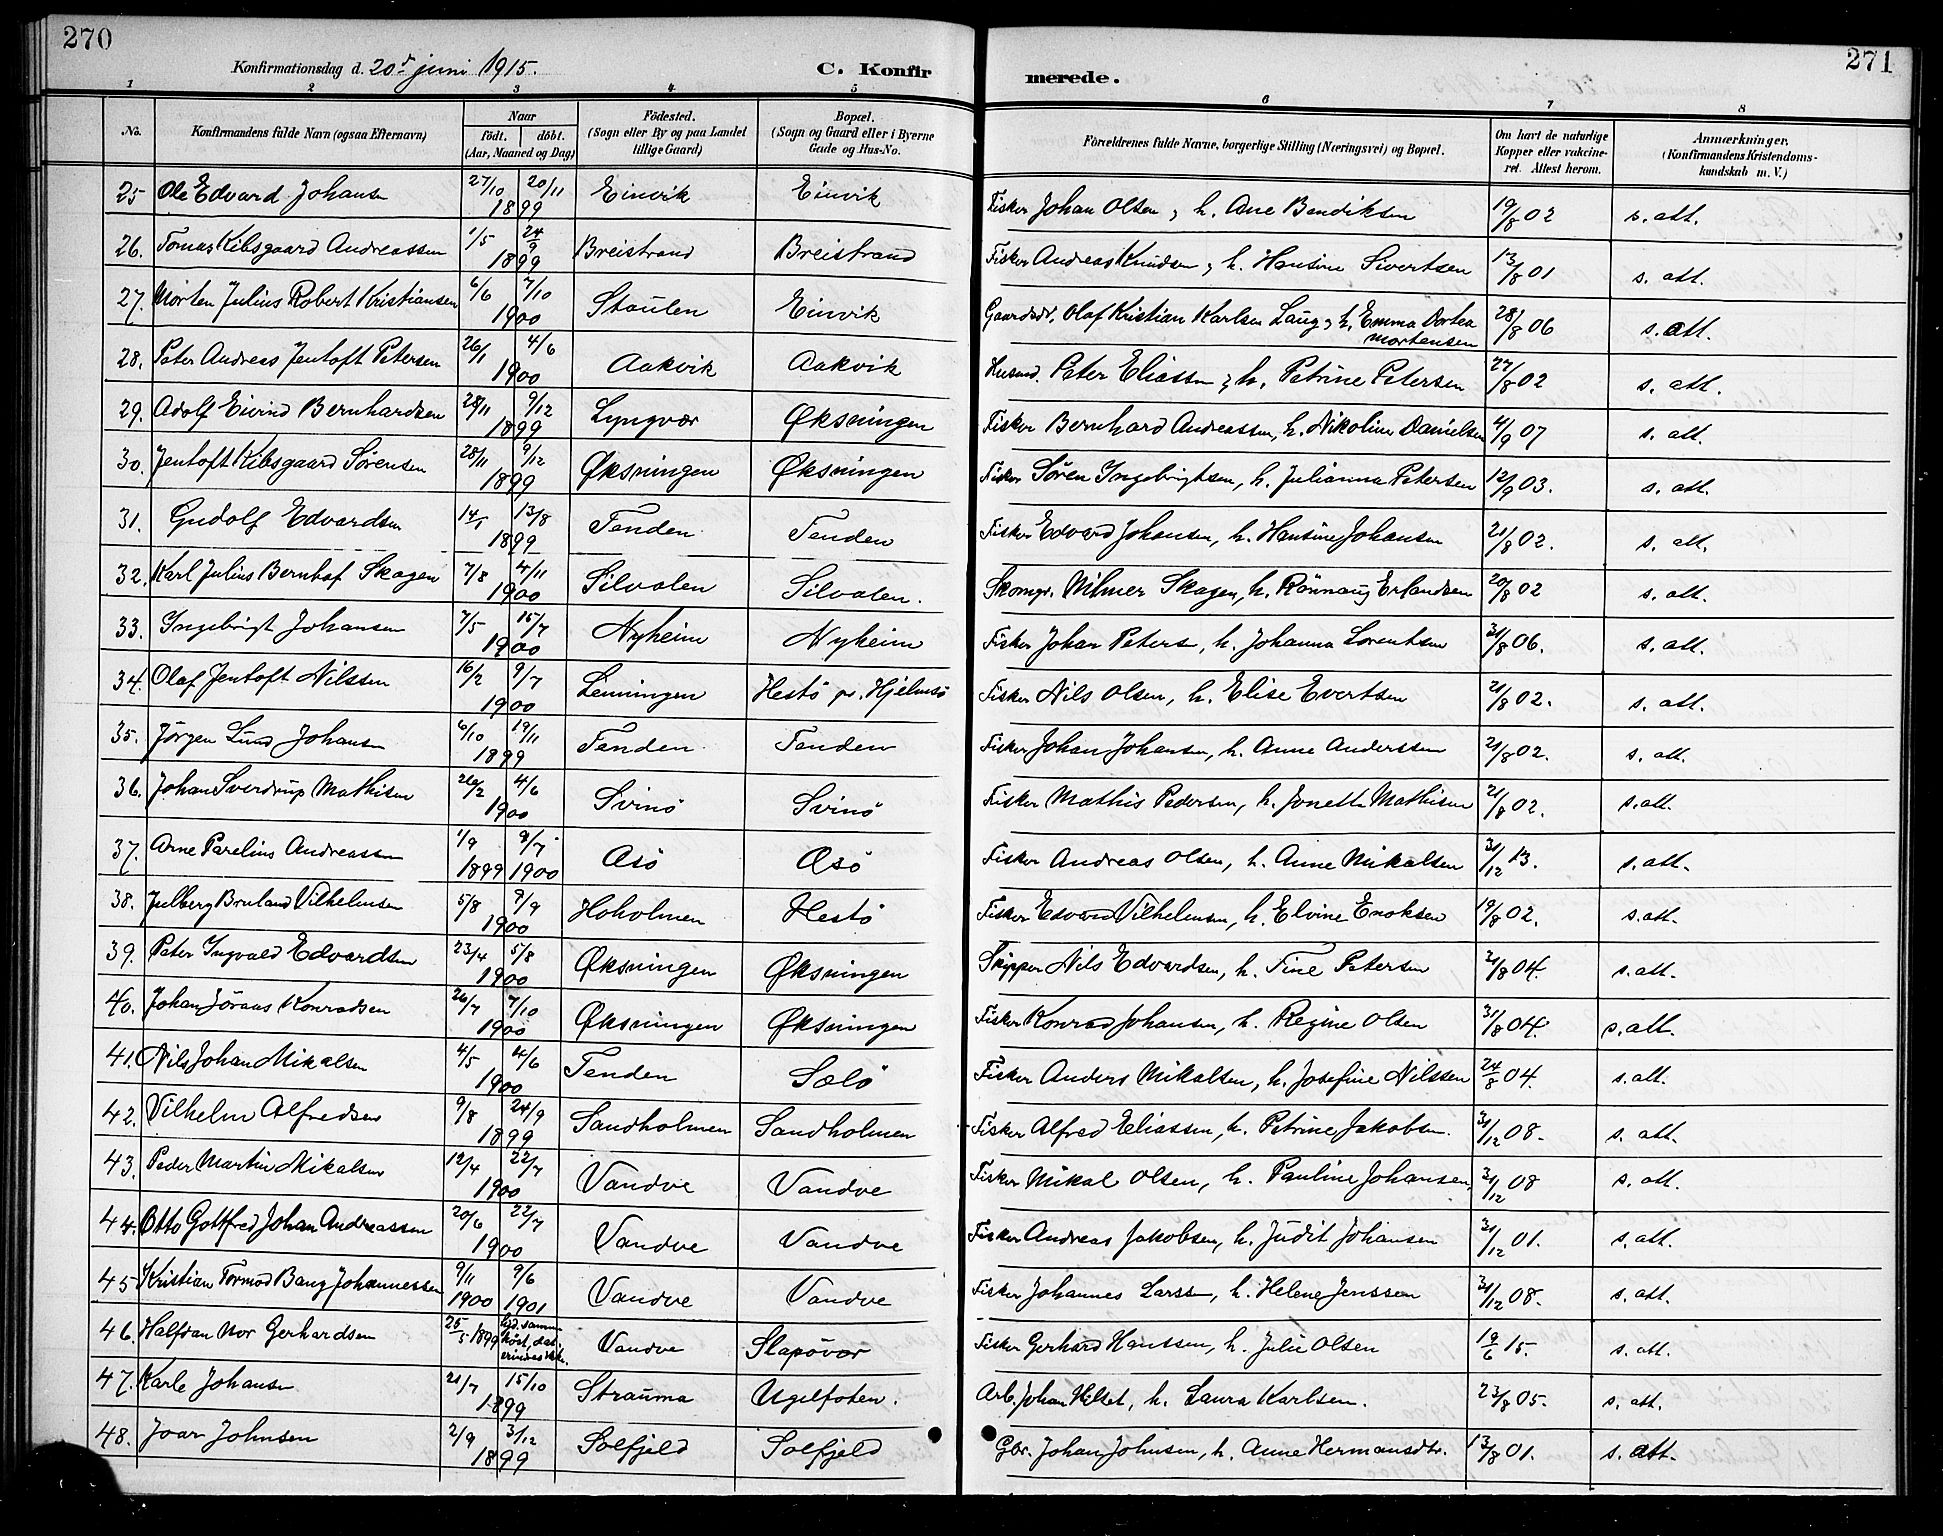 270
Konfirmationsdag d. 20de juni 1915.
C. Konfir
merede.
271
1 2 3 4 5 6 7 8
No.
Konfirmandens fulde Navn (ogsaa Efternavn)
Naar
födt. döbt.
(Aar, Maaned og Dag)
Födested.
(Sogn eller By og paa Landet
tillige Gaard)
Bopæl.
(Sogn og Gaard eller i Byerne
Gade og Hus-No.
Forældrenes fulde Navne, borgerlige Stilling (Næringsvei) og Bopæl.
Om havt de naturlige
Kopper eller vakcine-
ret. Attest herom.
Anmærkninger.
(Konfirmandens Kristendoms-
kundskab m. V.)
25 Ole Edvard Johansn 27/10 20/11 1899 Einvik Einvik Fisker Johan Olsen, h. Ane Bendiksen 19/8 02 s. att.
26. Tomas Kibsgaard Andreassen 1/5 24/9 1899 Breistrand Breistrand Fisker Andreas Knudsen, h. Hansine Sivertsen 13/8 01 s. att.
27. Morten Julius Robert Kristiansen 6/6 7/10 1900 Staulen Einvik Gaardbr. Olaf Kristian Karlsen Laug, h. Emma Dortea Mortensen 28/8 06 s. att.
28. Peter Andreas Jentoft Petersen 26/1 4/6 1900 Aakvik Aakvik Husmd. Peter Eliassen, h. Petrine Petersen 27/8 02 s. att.
29. Adolf Eivind Bernhardsen 28/11 9/12 1899 Lyngvær Øksningen Fisker Bernhard Andreassen, h. Nikoline Danielsen 4/9 07 s. att.
30. Jentoft Kibsgaard Sörensen 28/11 9/12 1899 Øksningen Øksningen Fisker Sören Ingebrigtsen, h. Julianna Petersen 12/9 03. s. att.
31. Gudolf Edvardsen 14/5 13/8 1899 Tenden Tenden Fisker Edvard Johansen, h. Hansine Johansen 21/8 02. s. att.
32. Karl Julius Bernhof Skagen 7/8 4/11 1900 Silvalen Silvalen. Skomgr. Wilmer Skagen, h. Rönnaug Erlandsen 20/8 02 s. att.
33. Ingebrigt Johansen 7/5 15/7 1900 Nyheim Nyheim Fisker Johan Peters, h. Johanna Lorentsen 31/8 06. s. att.
34. Olaf Jentoft Nilssen 16/2 9/7 1900 Lenningen Hestö pr. Hjelmsö Fisker Nils Olsen, h. Elise Evertsen 21/8 02. s. att.
35. Jörgen Lund Johansen 6/10 19/11 1899 Tenden Tenden Fisker Johan Johansen, h. Anne Anderssen 21/8 02. s. att.
36. Johan Sverdrup Mathisen 20/2 4/6 1900 Svinö Svinö Fisker Mathis Pedersen, h. Jonette Mathisen 21/8 02. s. att.
37. Arne Parelius Andreassen 1/9 1899 8/7 1900 Asö Asö Fisker Andreas Olsen, h. Anne Mikalsen 31/12 13. s. att.
38. Julberg Bruland Vilhelmsen 5/8 9/9 1900 Hoholmen Hestö Fisker Edvard Vilhelmsen, h. Elvine Enoksen 19/8 02. s. att.
39. Peter Ingvald Edvardsen 23/4 5/8 1900 Øksningen Øksningen Skipper Nils Edvardsen, h. Fine Petersen 31/8 04. s. att.
40. Johan Jörans Konradsen 26/7 7/10 1900 Øksningen Øksningen Fisker Konrad Johansen, h. Regine Olsen 31/8 04. s. att.
41. Nils Johan Mikalsen 4/5 4/6 1900 Tenden Sælö Fisker Anders Mikalsen, h. Josefine Nilssen 24/8 04. s. att.
42. Vilhelm Alfredsen 9/8 24/9 1899 Sandholmen Sandholmen Fisker Alfred Eliassen, h. Petrine Jakobsen. 31/12 08. s. att.
43. Peder Martin Mikalsen 12/4 22/7 1900 Vandve Vandve Fisker Mikal Olsen, h. Pauline Johansen, 31/12 08 s. att.
44. Otto Gottfred Johan Andreassen 20/6 22/7 1900 Vandve Vandve Fisker Andreas Jakobsen, h. Judit Johansen 31/12 01. s. att.
45 Kristian Tormod Bang Johannessen 9/11 1900 9/6 1901 Vandve Vandve Fisker Johannes Larssen, h. Helene Jenssen 31/12 08. s. att.
46. Halfdan Nor Gerhardsen 25/5 1899 Vandve Slapövær Fisker Gerhard Hanssen, h. Julie Olsen 19/6 15. s. att.
47. Karle Johansen 21/7 15/10 1899 Strauma Ugelfoten. Arb. Johan Hilset, h. Laura Karlsen. 23/8 05. s. att.
48. Joar Johnsen 2/9 3/12 1899 Solfjeld Solfjeld Gbr. Johan Johnsen, h. Anne Hermansdtr. 13/8 01. s. att.